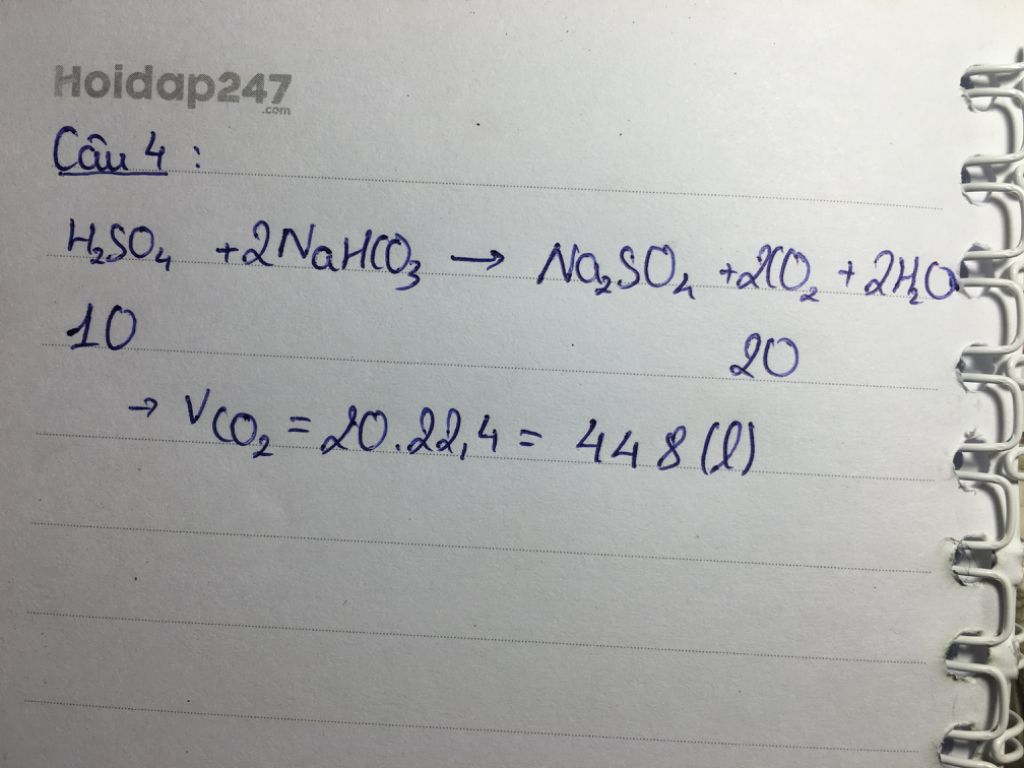 Hoidap247
.com
Câu 4 :
H₂SO₄ + 2NaHCO₃ → Na₂SO₄ + 2CO₂ + 2H₂O
10 20
→ V CO₂ = 20.22,4 = 448 (l)